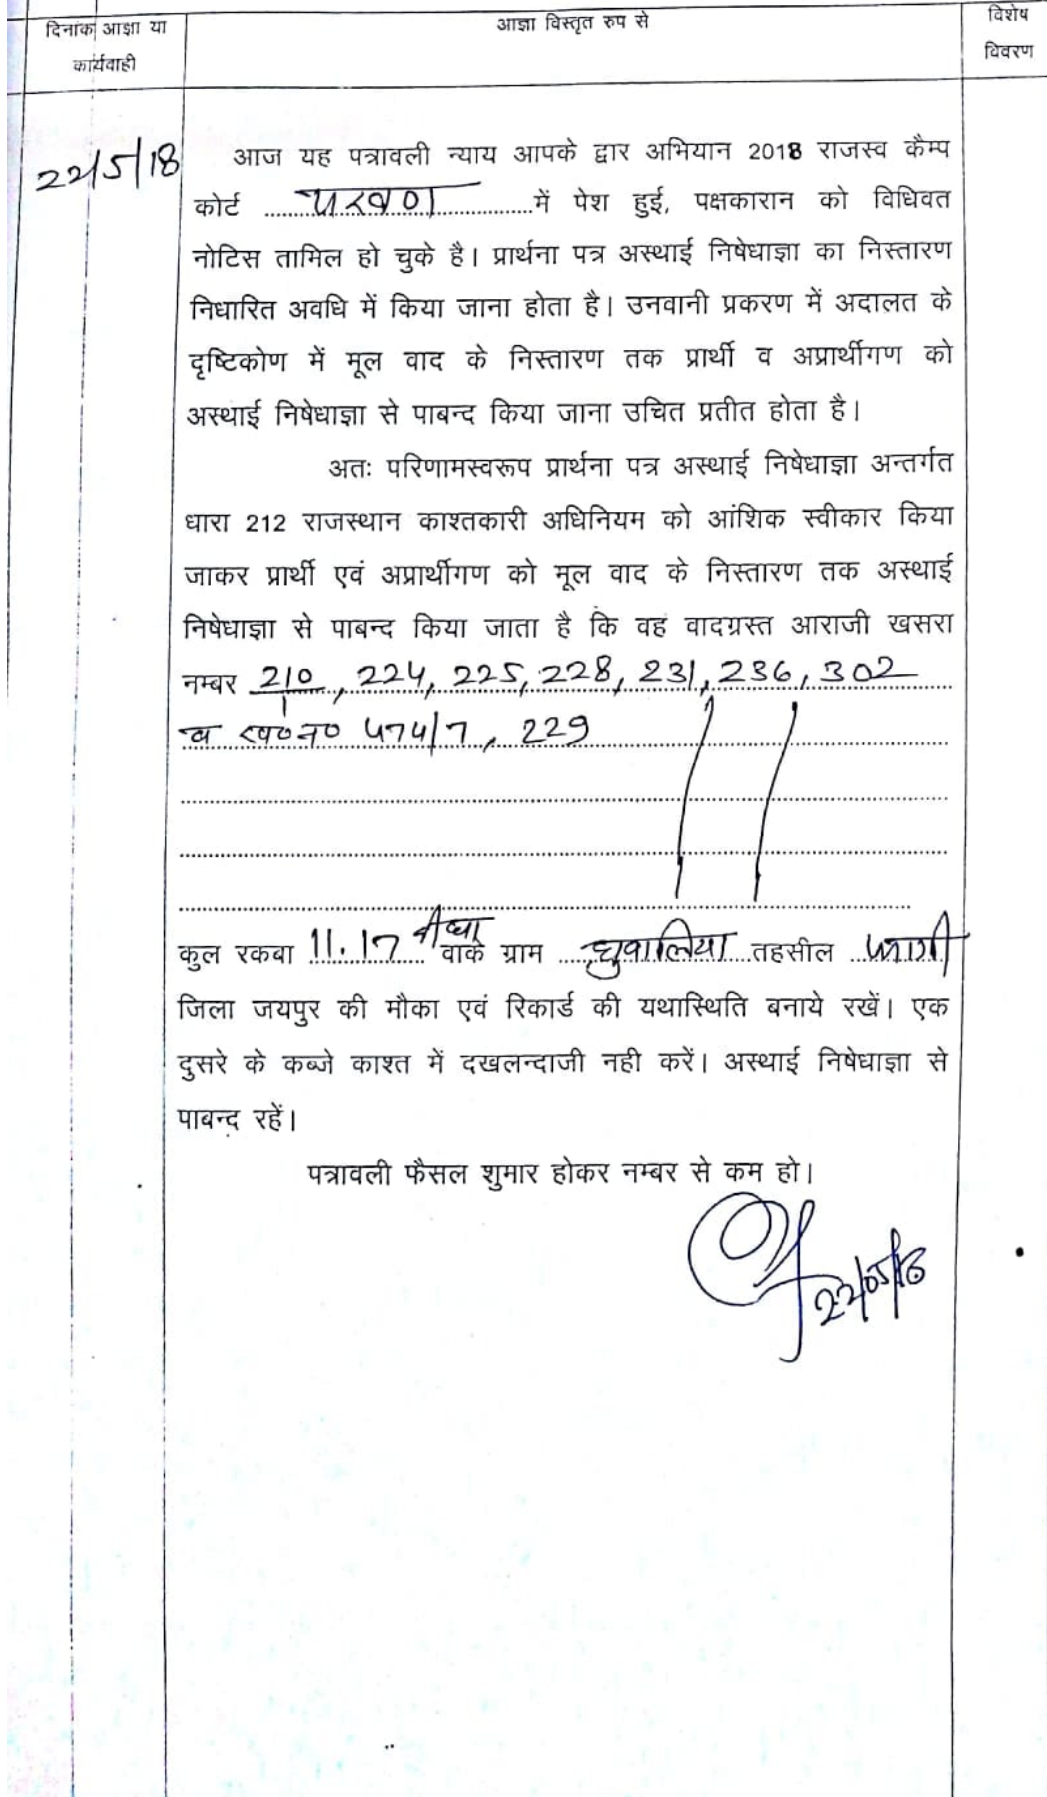 दिनांक आज्ञा या
कार्यवाही
आज्ञा विस्तृत रुप से
विशेष
विवरण
22/5/18
आज यह पत्रावली न्याय आपके द्वार अभियान 2018 राजस्व कैम्प
कोर्ट ........................... में पेश हुई, पक्षकारान को विधिवत
नोटिस तामिल हो चुके है। प्रार्थना पत्र अस्थाई निषेधाज्ञा का निस्तारण
निधारित अवधि में किया जाना होता है। उनवानी प्रकरण में अदालत के
दृष्टिकोण में मूल वाद के निस्तारण तक प्रार्थी व अप्रार्थीगण को
अस्थाई निषेधाज्ञा से पाबन्द किया जाना उचित प्रतीत होता है।
अतः परिणामस्वरूप प्रार्थना पत्र अस्थाई निषेधाज्ञा अन्तर्गत
धारा 212 राजस्थान काश्तकारी अधिनियम को आंशिक स्वीकार किया
जाकर प्रार्थी एवं अप्रार्थीगण को मूल वाद के निस्तारण तक अस्थाई
निषेधाज्ञा से पाबन्द किया जाता है कि वह वादग्रस्त आराजी खसरा
नम्बर 210/1, 224, 225, 228, 231, 236, 302
व ख०न० 474/7, 229
कुल रकबा 11.17 बीघा वाके ग्राम तहसील फागी
जिला जयपुर की मौका एवं रिकार्ड की यथास्थिति बनाये रखें। एक
दुसरे के कब्जे काश्त में दखलन्दाजी नही करें। अस्थाई निषेधाज्ञा से
पाबन्द रहें।
पत्रावली फैसल शुमार होकर नम्बर से कम हो।
22/05/18